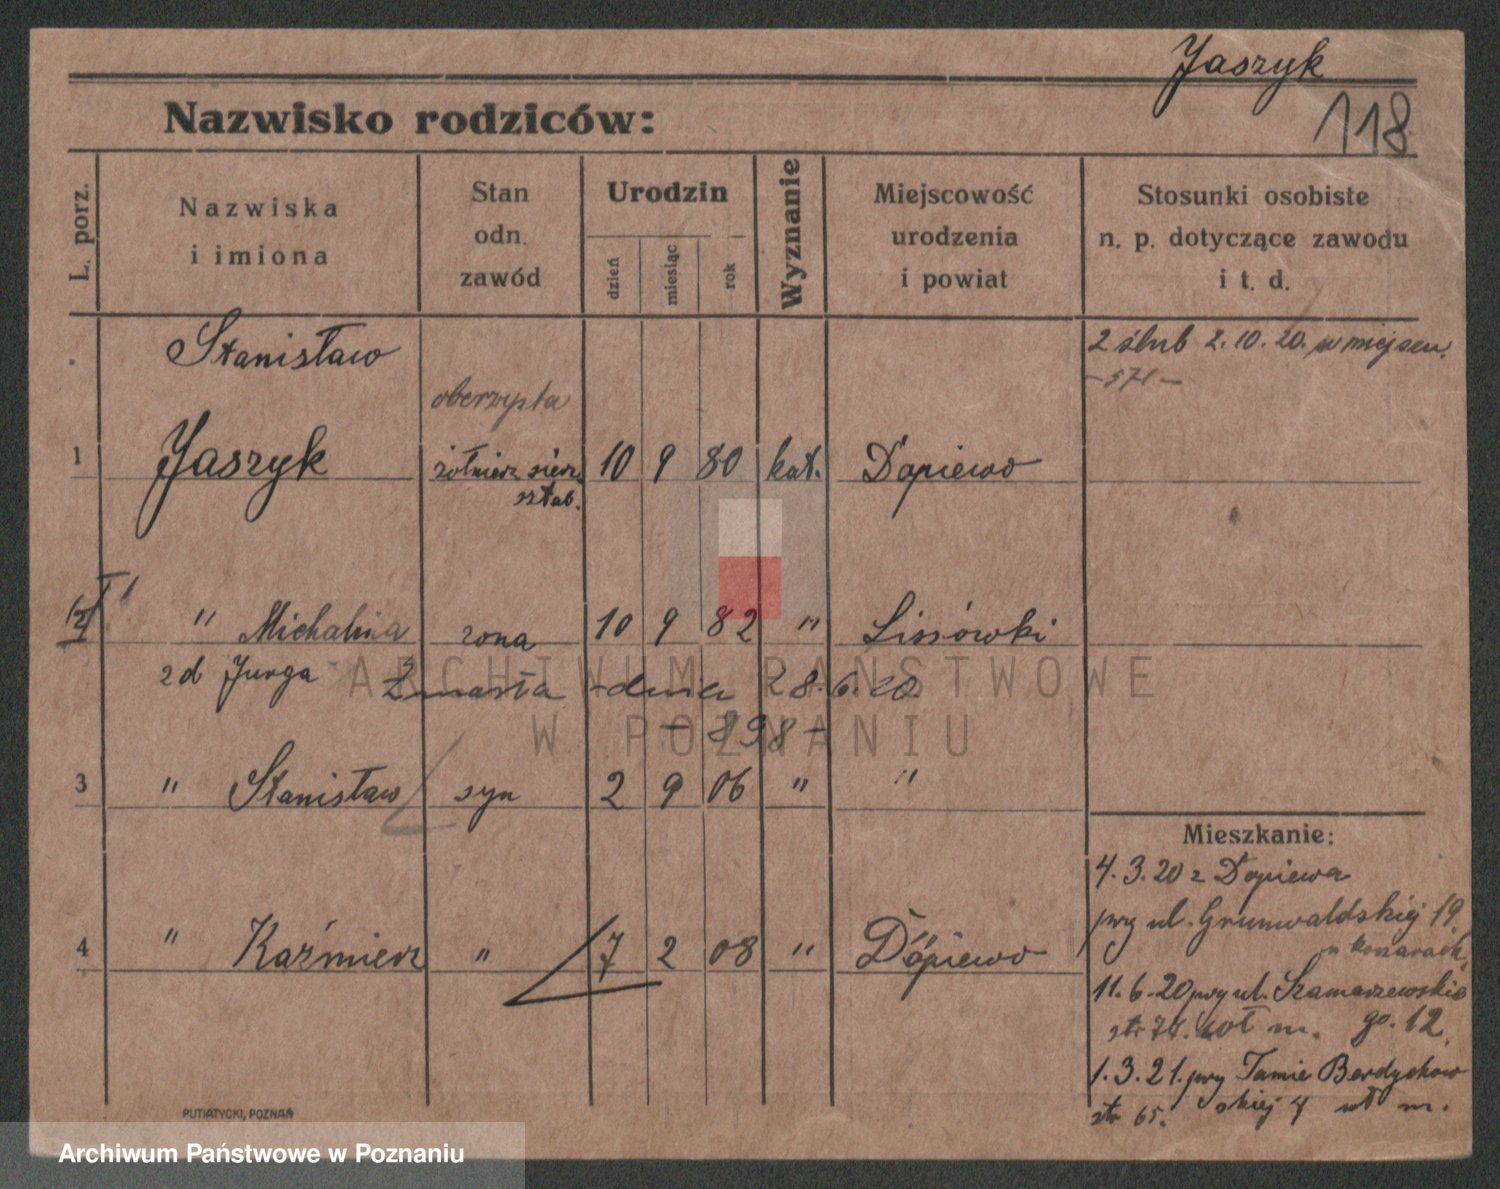 Jaszyk
118
Nazwisko rodziców:
L. porz.
Nazwiska
i imiona
Stan
odn.
zawód
Urodzin
dzień
miesiąc
rok
Wyznanie
Miejscowość
urodzenia
i powiat
Stosunki osobiste
n. p. dotyczące zawodu
i t. d.
Stanisław
2 ślub 2.10.20. w miejscu
-571-
1 Jaszyk żołnierz sierż. sztab. 10 9 80 kat. Dopiewo
2 " Michalina żona 10 9 82 " Lissówki
zd Jurga Zmarła dnia 28.6.20
- 898 -
3 " Stanisław syn 2 9 06 " "
Mieszkanie:
4.3.20 z Dopiewa
przy ul. Grunwaldskiej 19.
w koszarach,
4 " Kaźmierz " 7 2 08 " Dopiewo
11.6.20 przy ul. Szamarzewskie
go. 12
1.3.21. przy Tamie Berdychow
str 65. skiej 4 wł m.
PUTIATYCKI, POZNAŃ
ARCHIWUM PAŃSTWOWE
W POZNANIU
Archiwum Państwowe w Poznaniu